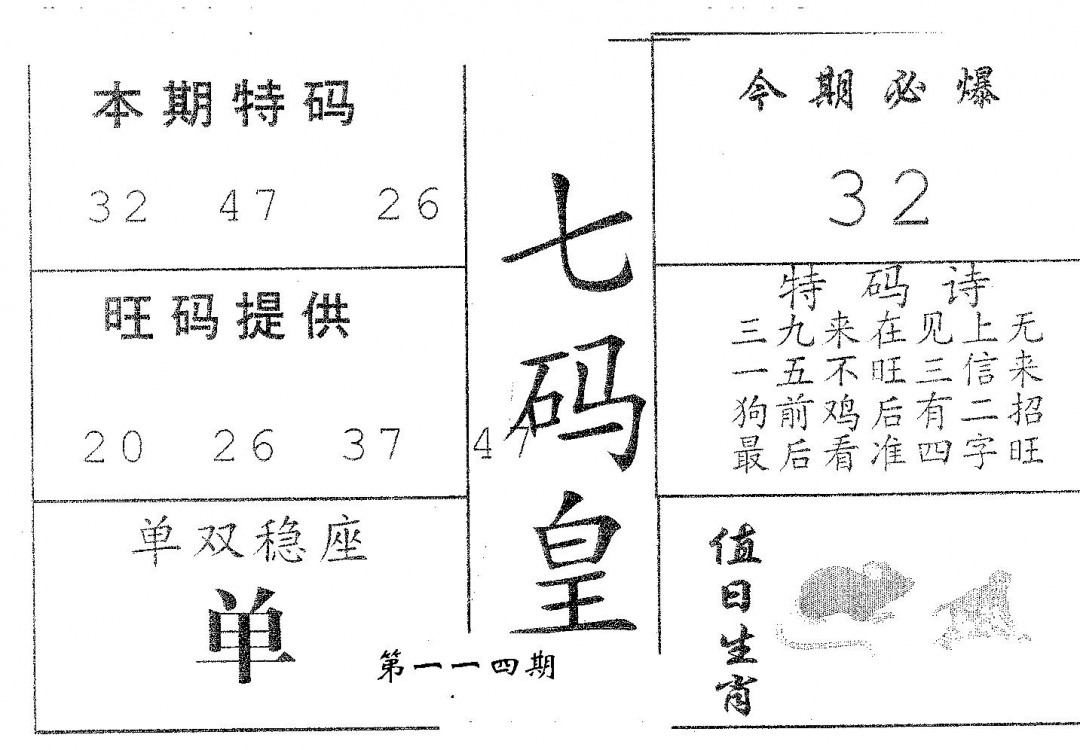 本期特码
32 47 26
旺码提供
20 26 37 47
单双稳座
单
七码皇
第一一四期
今期必爆
32
特码诗
三九来在见上无
一五不旺三信来
狗前鸡后有二招
最后看准四字旺
值日生肖